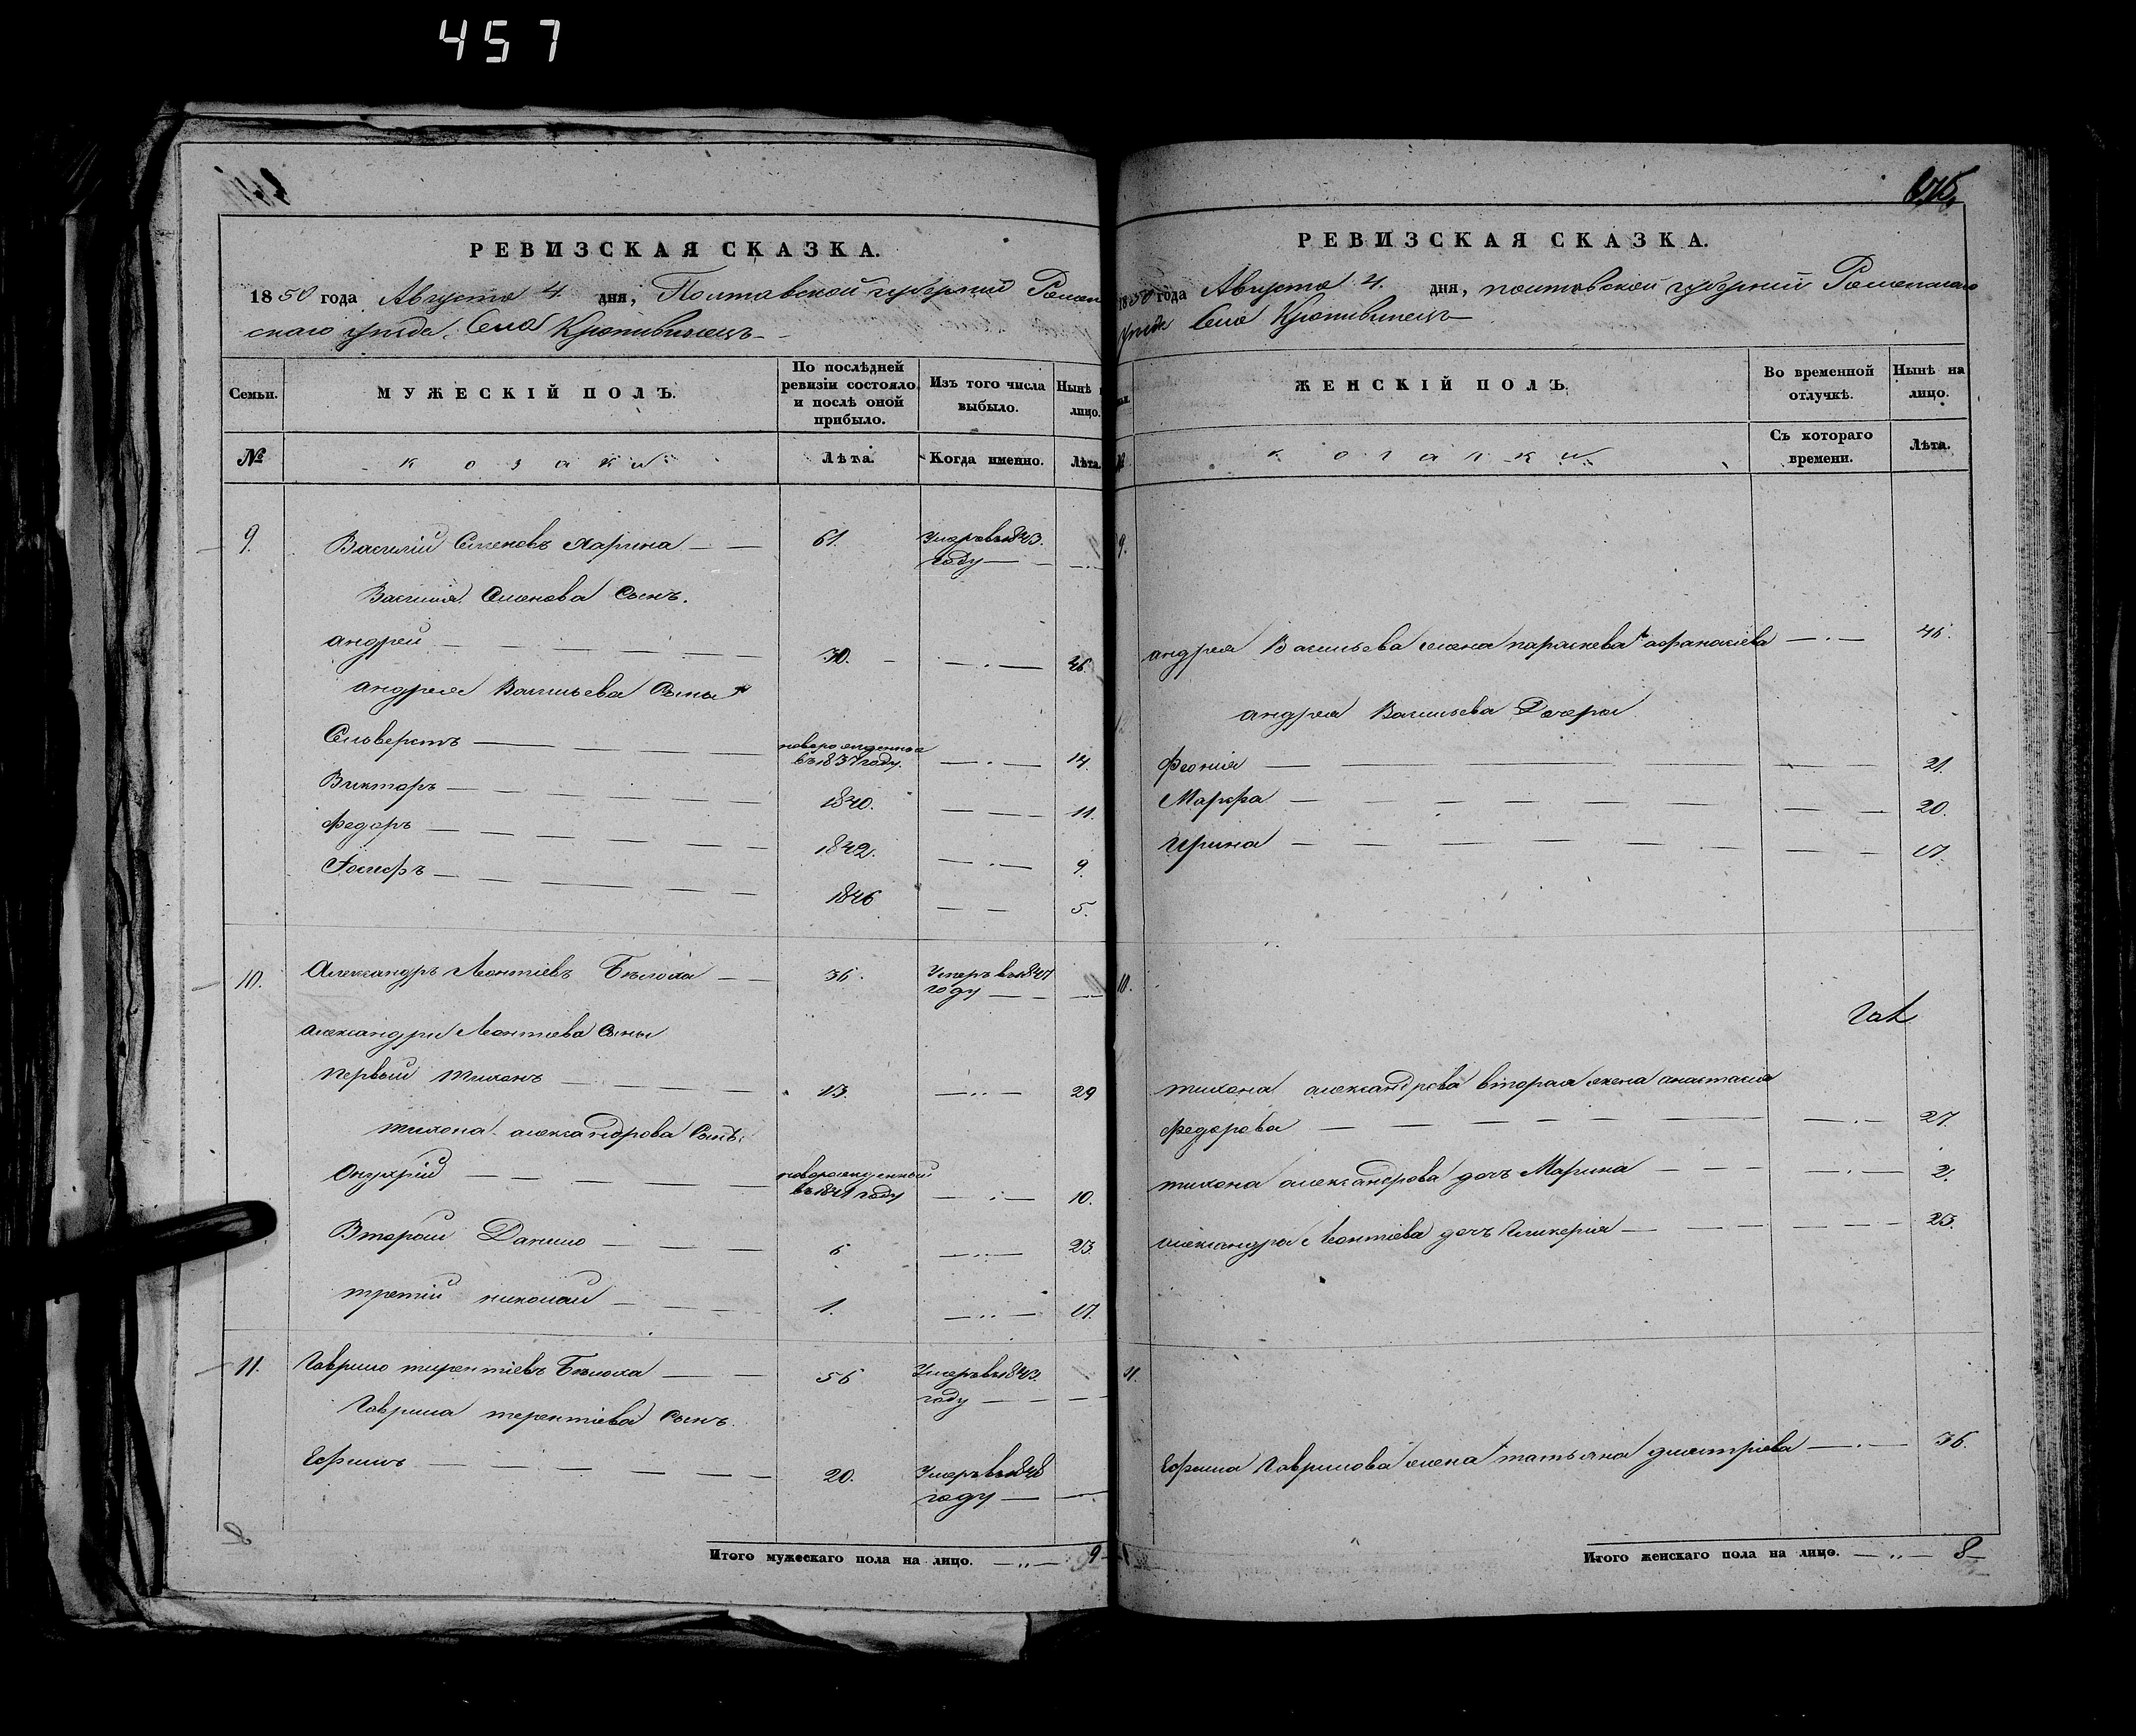 457
РЕВИЗСКАЯ СКАЗКА.
1850 года Августа 4 дня, Полтавской губерніи Ромен
скаго уѣзда Села Кропивинецъ
Семьи.
МУЖЕСКІЙ ПОЛЪ.
По послѣдней
ревизіи состояло,
и послѣ оной
прибыло.
Изъ того числа
выбыло.
Нынѣ
лицо.
№
козаки
Лѣта.
Когда именно.
Лѣта.
9. Василій Семеновъ 61. Умеръ въ 1843.
году
Василія Семенова Сынъ.
андрей 30. 46.
андрея Васильева Сыны
Сельверстъ новорожденные
въ 1837 году. 14.
Викторъ 1840. 11.
Федоръ 1842. 9.
Іосифъ 1846 5.
10. Александръ Леонтіевъ Бѣлоха 36. Умеръ въ 1841
году
александра Леонтіева Сыны
первый тихонъ 13. 29
тихона александрова Сынъ.
Онуфрій новорожденный
въ 1841 году 10.
Второй Данило 6 23
третій николай 1. 17.
11. Гаврило тирентіевъ Бѣлоха 56 Умеръ въ 1843.
году
Гаврила терентіева Сынъ.
Ефимъ 20. Умеръ въ 1848
году
Итого мужескаго пола на лицо. 9
РЕВИЗСКАЯ СКАЗКА.
1850 года Августа 4. дня, полтавской губерніи Роменскаго
уѣзда Села Кропивинецъ
ЖЕНСКІЙ ПОЛЪ.
Во временной
отлучкѣ.
Нынѣ на
лицо.
№
козачки
Съ котораго
времени.
Лѣта.
9.
андрея Васильева жена параскева афанасіева 46.
андрея Васильева Дочери
Феонія 21.
Марфа 20.
Ирина 17.
10.
тихона александрова вторая жена анастасія
Федорова 27.
тихона александрова дочь Марина 2.
александра Леонтіева дочь Гликерія 23.
11.
Ефима Гаврилова жена татьяна дмитріева 36.
Итого женскаго пола на лицо. 8